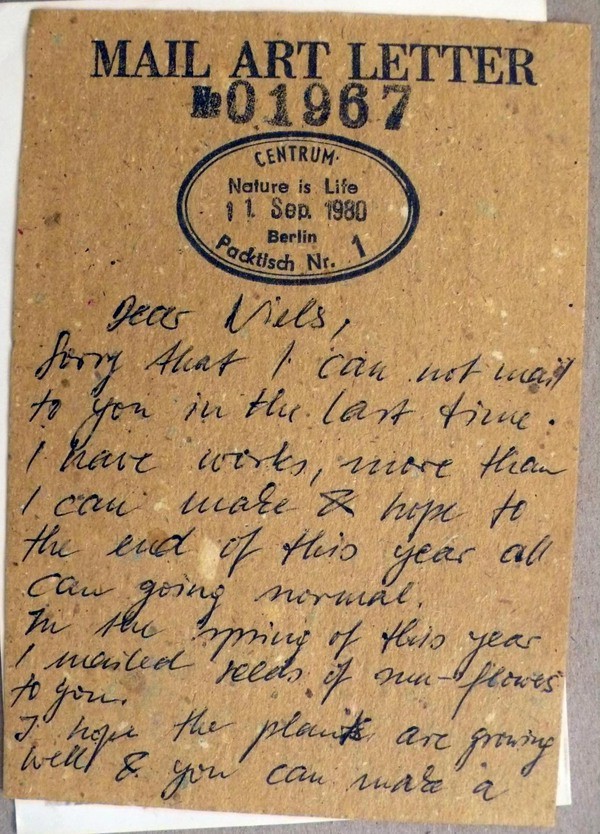 MAIL ART LETTER
№01967
CENTRUM·
Nature is Life
11. Sep. 1980
Berlin
Packtisch Nr. 1
Dear Niels,
Sorry that I can not mail
to you in the last time.
I have works, more than
I can make & hope to
the end of this year all
can going normal.
In the spring of this year
I mailed seeds of sun-flowers
to you.
I hope the plants are growing
well & you can make a